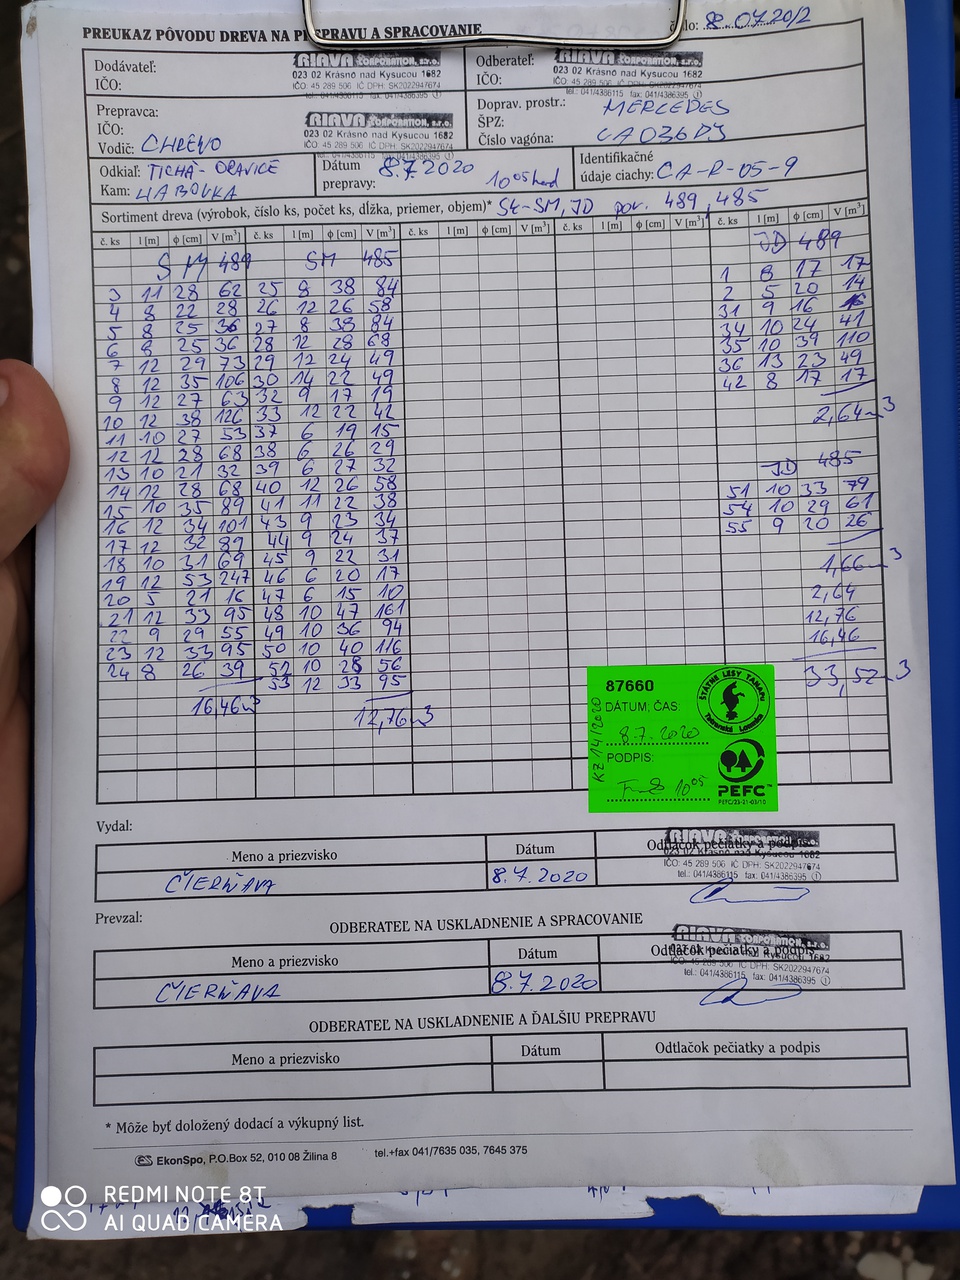 PREUKAZ PÔVODU DREVA NA PREPRAVU A SPRACOVANIE
číslo: 8.0720/2
Dodávateľ:
IČO:
RIAVA CORPORATION, s.r.o.
023 02 Krásno nad Kysucou 1682
IČO: 45 289 506 IČ DPH: SK2022947674
tel.: 041/4386115 fax: 041/4386395 ①
Odberateľ:
IČO:
RIAVA CORPORATION, s.r.o.
023 02 Krásno nad Kysucou 1682
IČO: 45 289 506 IČ DPH: SK2022947674
tel.: 041/4386115 fax: 041/4386395 ①
Prepravca:
IČO:
Vodič:
RIAVA CORPORATION, s.r.o.
023 02 Krásno nad Kysucou 1682
IČO: 45 289 506 IČ DPH: SK2022947674
tel.: 041/4386115 fax: 041/4386395 ①
Doprav. prostr.: MERCEDES
ŠPZ: CA036DJ
Číslo vagóna:
Odkiaľ: TICHÁ-ORAVICE
Kam: HABOVKA
Dátum
prepravy: 8.7.2020 10 05 hod
Identifikačné
údaje ciachy: CA-R-05-9
Sortiment dreva (výrobok, číslo ks, počet ks, dĺžka, priemer, objem)* St-SM, JD por. 489, 485
č. ks l [m] ϕ [cm] V [m³] č. ks l [m] ϕ [cm] V [m³] č. ks l [m] ϕ [cm] V [m³] č. ks l [m] ϕ [cm] V [m³] č. ks l [m] ϕ [cm] V [m³]
SM 489 SM 485 JD 489
3 11 28 62 25 8 38 84
4 8 22 28 26 12 26 58
5 8 25 36 27 8 38 84
6 8 25 36 28 12 28 68
7 12 29 73 29 12 24 49
8 12 35 106 30 14 22 49
9 12 27 63 32 9 17 19
10 12 38 126 33 12 22 42
11 10 27 53 37 6 19 15
12 12 28 68 38 6 26 29
13 10 21 32 39 6 27 32
14 12 28 68 40 12 26 58
15 10 35 89 41 11 22 38
16 12 34 101 43 9 23 34
17 12 32 89 44 9 24 37
18 10 31 69 45 9 22 31
19 12 53 247 46 6 20 17
20 5 21 16 47 6 15 10
21 12 33 95 48 10 47 161
22 9 29 55 49 10 36 94
23 12 33 95 50 10 40 116
24 8 26 39 52 10 28 56
53 12 33 95
16,46m3
12,76m3
1 8 17 17
2 5 20 14
31 9 16 16
34 10 24 41
35 10 39 110
36 13 23 49
42 8 17 17
2,64m3
JD 485
51 10 33 79
54 10 29 61
55 9 20 26
1,66m3
2,64
12,76
16,46
33,52m3
87660
DÁTUM, ČAS:
8.7.2020
PODPIS:
10 05
KZ 14/2020
ŠTÁTNE LESY TANAPU
Tatranská Lomnica
PEFC™
PEFC/23-21-03/10
Vydal:
Meno a priezvisko Dátum Odtlačok pečiatky a podpis
ČIERŇAVA 8.7.2020
RIAVA CORPORATION, s.r.o.
023 02 Krásno nad Kysucou 1682
IČO: 45 289 506 IČ DPH: SK2022947674
tel.: 041/4386115 fax: 041/4386395 ①
Prevzal:
ODBERATEĽ NA USKLADNENIE A SPRACOVANIE
Meno a priezvisko Dátum Odtlačok pečiatky a podpis
ČIERŇAVA 8.7.2020
RIAVA CORPORATION, s.r.o.
023 02 Krásno nad Kysucou 1682
IČO: 45 289 506 IČ DPH: SK2022947674
tel.: 041/4386115 fax: 041/4386395 ①
ODBERATEĽ NA USKLADNENIE A ĎALŠIU PREPRAVU
Meno a priezvisko Dátum Odtlačok pečiatky a podpis
* Môže byť doložený dodací a výkupný list.
EkonSpo, P.O.Box 52, 010 08 Žilina 8 tel.+fax 041/7635 035, 7645 375
REDMI NOTE 8T
AI QUAD CAMERA